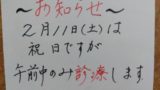 〜お知らせ〜
2月11日(土)は
祝日ですが
午前中のみ診療します